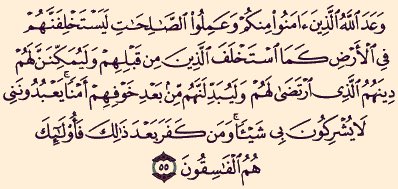 وَعَدَ ٱللَّهُ ٱلَّذِينَ ءَامَنُوا۟ مِنكُمْ وَعَمِلُوا۟ ٱلصَّـٰلِحَـٰتِ لَيَسْتَخْلِفَنَّهُمْ
فِى ٱلْأَرْضِ كَمَا ٱسْتَخْلَفَ ٱلَّذِينَ مِن قَبْلِهِمْ وَلَيُمَكِّنَنَّ لَهُمْ
دِينَهُمُ ٱلَّذِى ٱرْتَضَىٰ لَهُمْ وَلَيُبَدِّلَنَّهُم مِّنۢ بَعْدِ خَوْفِهِمْ أَمْنًا ۚ يَعْبُدُونَنِى
لَا يُشْرِكُونَ بِى شَيْـًٔا ۚ وَمَن كَفَرَ بَعْدَ ذَٰلِكَ فَأُو۟لَـٰٓئِكَ
هُمُ ٱلْفَـٰسِقُونَ ٥٥